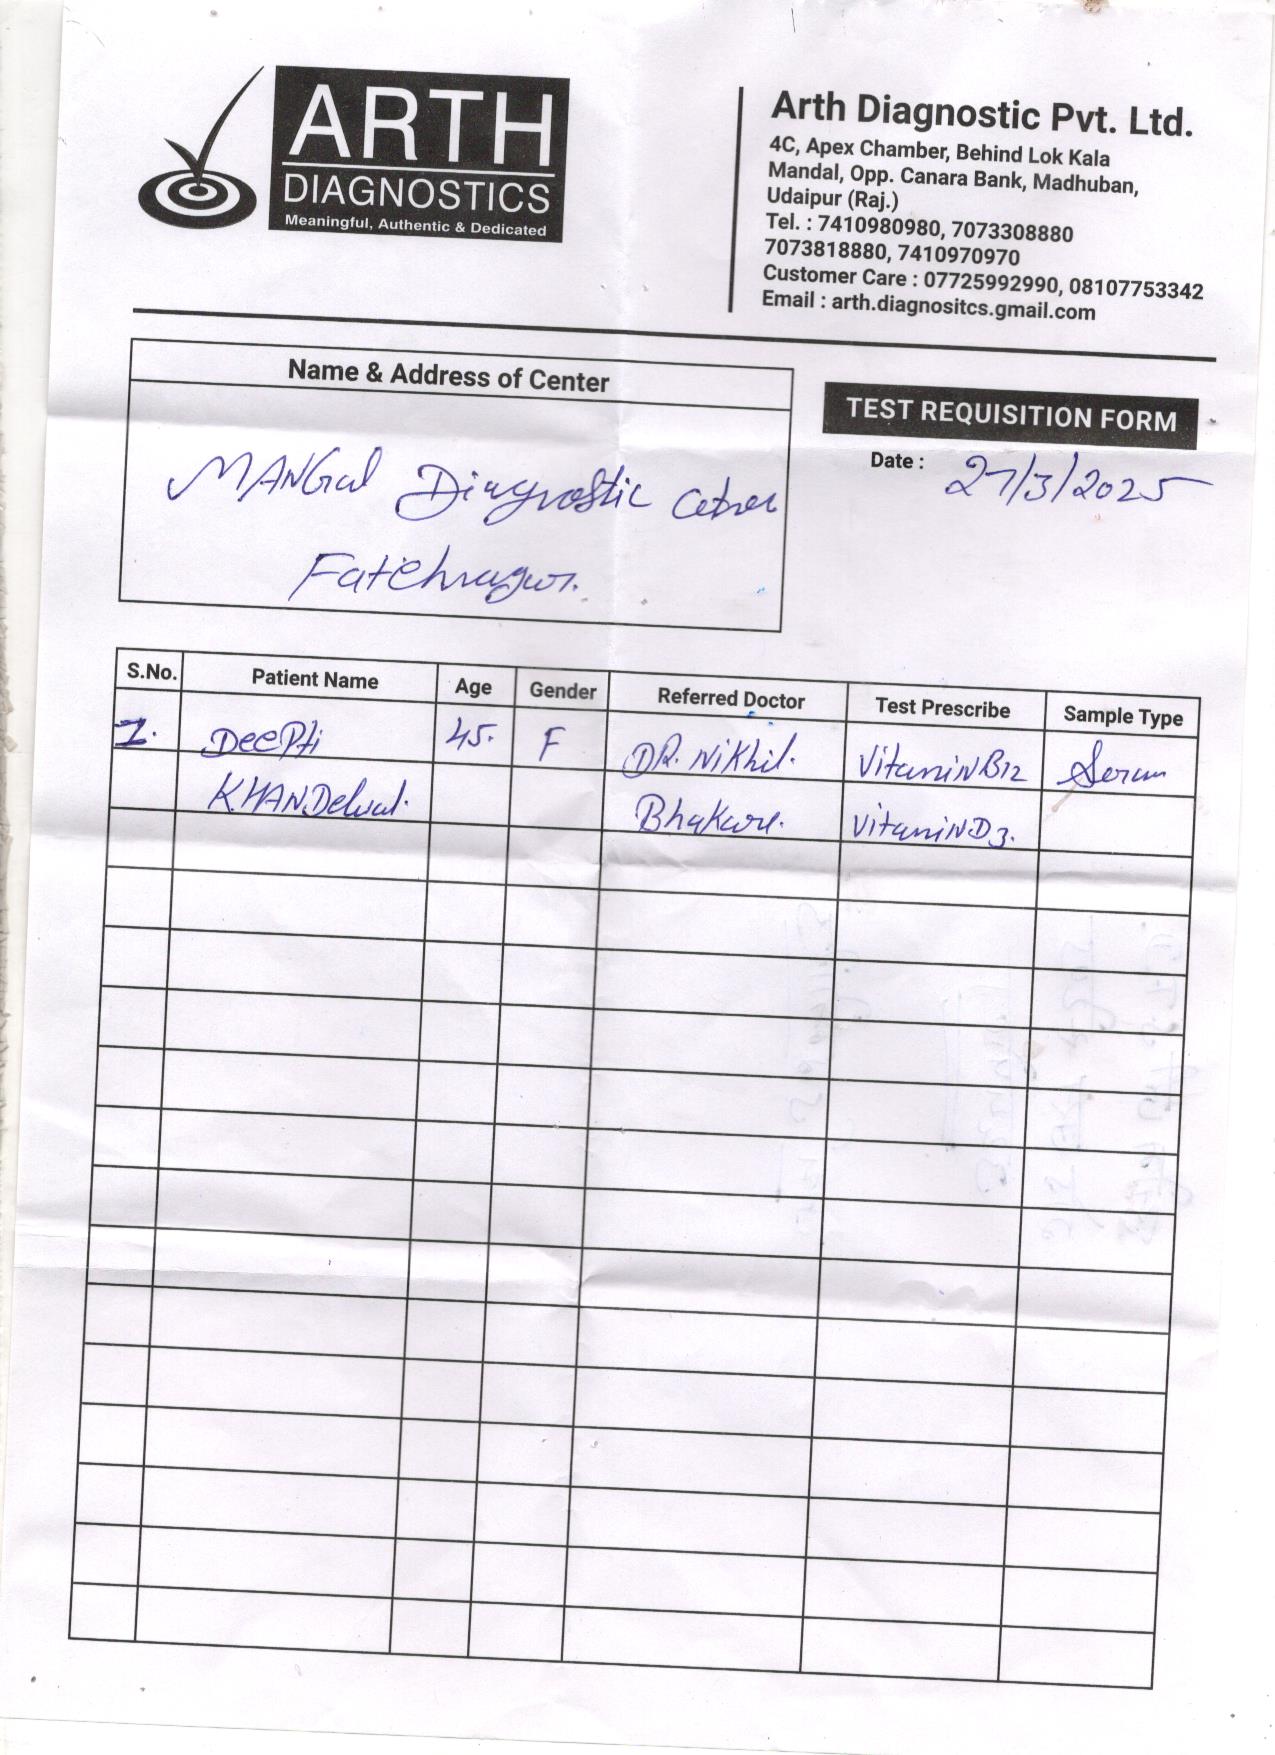 ARTH
DIAGNOSTICS
Meaningful, Authentic & Dedicated
Arth Diagnostic Pvt. Ltd.
4C, Apex Chamber, Behind Lok Kala
Mandal, Opp. Canara Bank, Madhuban,
Udaipur (Raj.)
Tel. : 7410980980, 7073308880
7073818880, 7410970970
Customer Care : 07725992990, 08107753342
Email : arth.diagnositcs.gmail.com
Name & Address of Center
MANGal Diagnostic
Fatehnagar.
TEST REQUISITION FORM
Date : 27/3/2025
S.No. Patient Name Age Gender Referred Doctor Test Prescribe Sample Type
1. DeePti 45. F DR. NiKhil. VitamiNB12 Serum
KHANDelwal. Bhakare. VitamiN.D3.